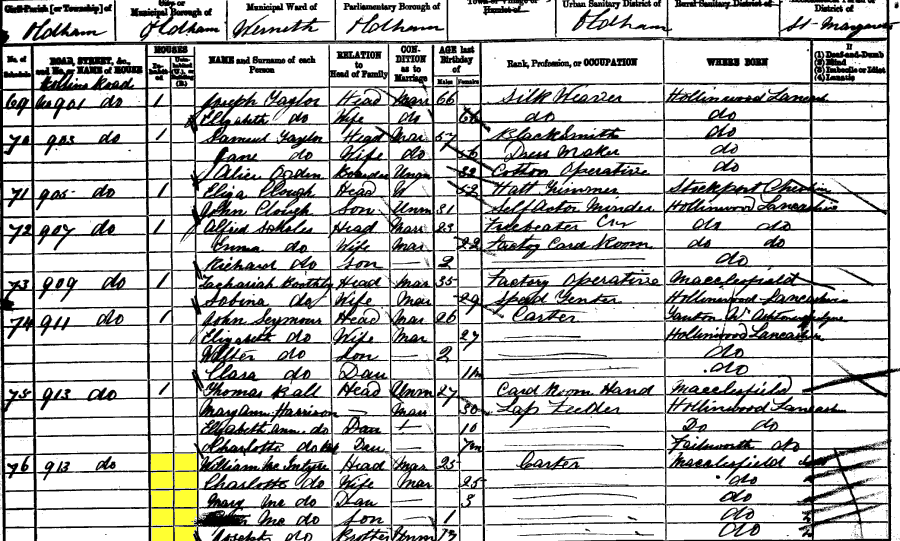 Civil Parish [or Township] of City or Municipal Borough of Municipal Ward of Parliamentary Borough of Town or Village or Hamlet of Urban Sanitary District of Rural Sanitary District of
Oldham Oldham Werneth Oldham Oldham St Margarets
No. of Schedule ROAD, STREET, &c., and No. or NAME of HOUSE HOUSES Inhabited Uninhabited (U.), or Building (B.) NAME and Surname of each Person RELATION to Head of Family CONDITION as to Marriage AGE last Birthday of Males Females Rank, Profession, or OCCUPATION WHERE BORN If (1) Deaf-and-Dumb (2) Blind (3) Imbecile or Idiot (4) Lunatic
Hollins Road
69 901 do 1 Joseph Taylor Head Mar 66 Silk Weaver Hollinwood Lancash
Elizabeth do Wife do do do
70 903 do 1 Samuel Taylor Head Mar 57 Blacksmith do
Jane do Wife do 56 Dress Maker do
Alice Ogden Boarder Unm 32 Cotton Operative do
71 905 do 1 Eliza Clough Head W 52 Hatt Trimmer Stockport Cheshire
John Clough Son Unm 31 Self Actor Minder Hollinwood Lancashire
72 907 do 1 Alfred Scholes Head Mar 23 do do
Emma do Wife Mar 22 Factory Card Room do do
Richard do Son — 2 do
73 909 do 1 Zachariah Head Mar 35 Factory Operative Macclesfield
Sabina do Wife Mar 29 Speed Tenter Hollinwood Lancashire
74 911 do 1 John Seymour Head Mar 26 Carter
Elizabeth do Wife Mar 27 Hollinwood Lancashire
Walter do Son — 2 do
Clara do Dau 1m do
75 913 do 1 Thomas Ball Head Unm 27 Card Room Hand Macclesfield
Mary Ann Harrison — Mar 30 Lap Feeder Hollinwood Lancash
Elizabeth Ann do Dau 10 Do do
Charlotte do Dau 7m Failsworth do
76 913 do William Mc Intyre Head Mar 25 Carter Macclesfield
Charlotte do Wife Mar 25 do
Mary Mc do Dau — 3 do
Mc do Son — 1 do
Joseph do Brother Unm 19 do